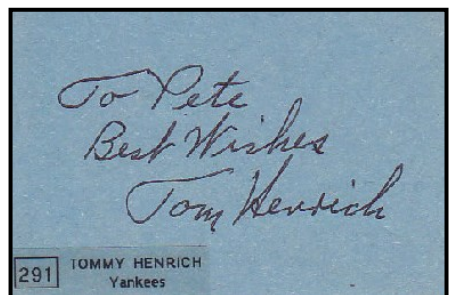 To Pete
Best Wishes
Tom Henrich
291
TOMMY HENRICH
Yankees